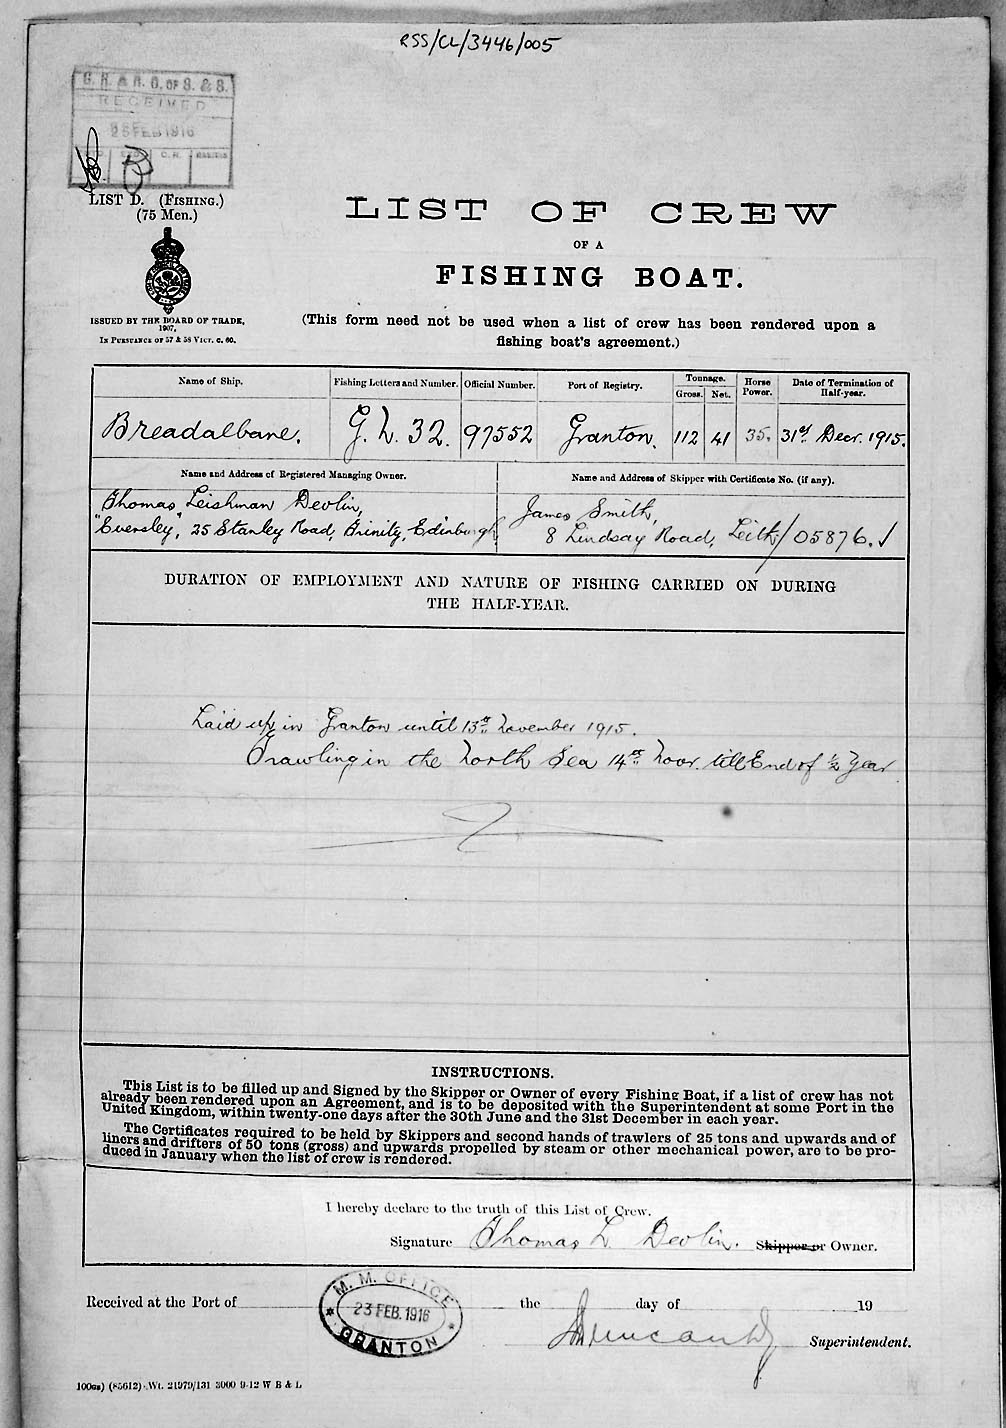 RSS/CL/3446/005
G. R. & R. O. OF S. & S.
RECEIVED
25 FEB 1916
C. R.
LIST D. (FISHING.)
(75 Men.)
ISSUED BY THE BOARD OF TRADE,
1907,
IN PURSUANCE OF 57 & 58 VICT. C. 60.
LIST OF CREW
OF A
FISHING BOAT.
(This form need not be used when a list of crew has been rendered upon a
fishing boat's agreement.)
Name of Ship. Fishing Letters and Number. Official Number. Port of Registry. Tonnage. Gross. Net. Horse Power. Date of Termination of Half-year.
Breadalbane. G.N. 32. 97552 Granton. 112 41 35. 31st Decr. 1915.
Name and Address of Registered Managing Owner. Name and Address of Skipper with Certificate No. (if any).
Thomas Leishman Devlin, James Smith,
"Eversley", 25 Stanley Road, Trinity, Edinburgh. 8 Lindsay Road, Leith/05876. ✓
DURATION OF EMPLOYMENT AND NATURE OF FISHING CARRIED ON DURING
THE HALF-YEAR.
Laid up in Granton until 13th November 1915.
Trawling in the North Sea 14th Novr. till End of ½ Year
INSTRUCTIONS.
This List is to be filled up and Signed by the Skipper or Owner of every Fishing Boat, if a list of crew has not
already been rendered upon an Agreement, and is to be deposited with the Superintendent at some Port in the
United Kingdom, within twenty-one days after the 30th June and the 31st December in each year.
The Certificates required to be held by Skippers and second hands of trawlers of 25 tons and upwards and of
liners and drifters of 50 tons (gross) and upwards propelled by steam or other mechanical power, are to be pro-
duced in January when the list of crew is rendered.
I hereby declare to the truth of this List of Crew.
Signature Thomas L. Devlin. Skipper or Owner.
M. M. OFFICE
23 FEB. 1916
GRANTON
Received at the Port of the day of 19
Superintendent.
100es) (85612) Wt. 21979/131 3000 9-12 W B & L